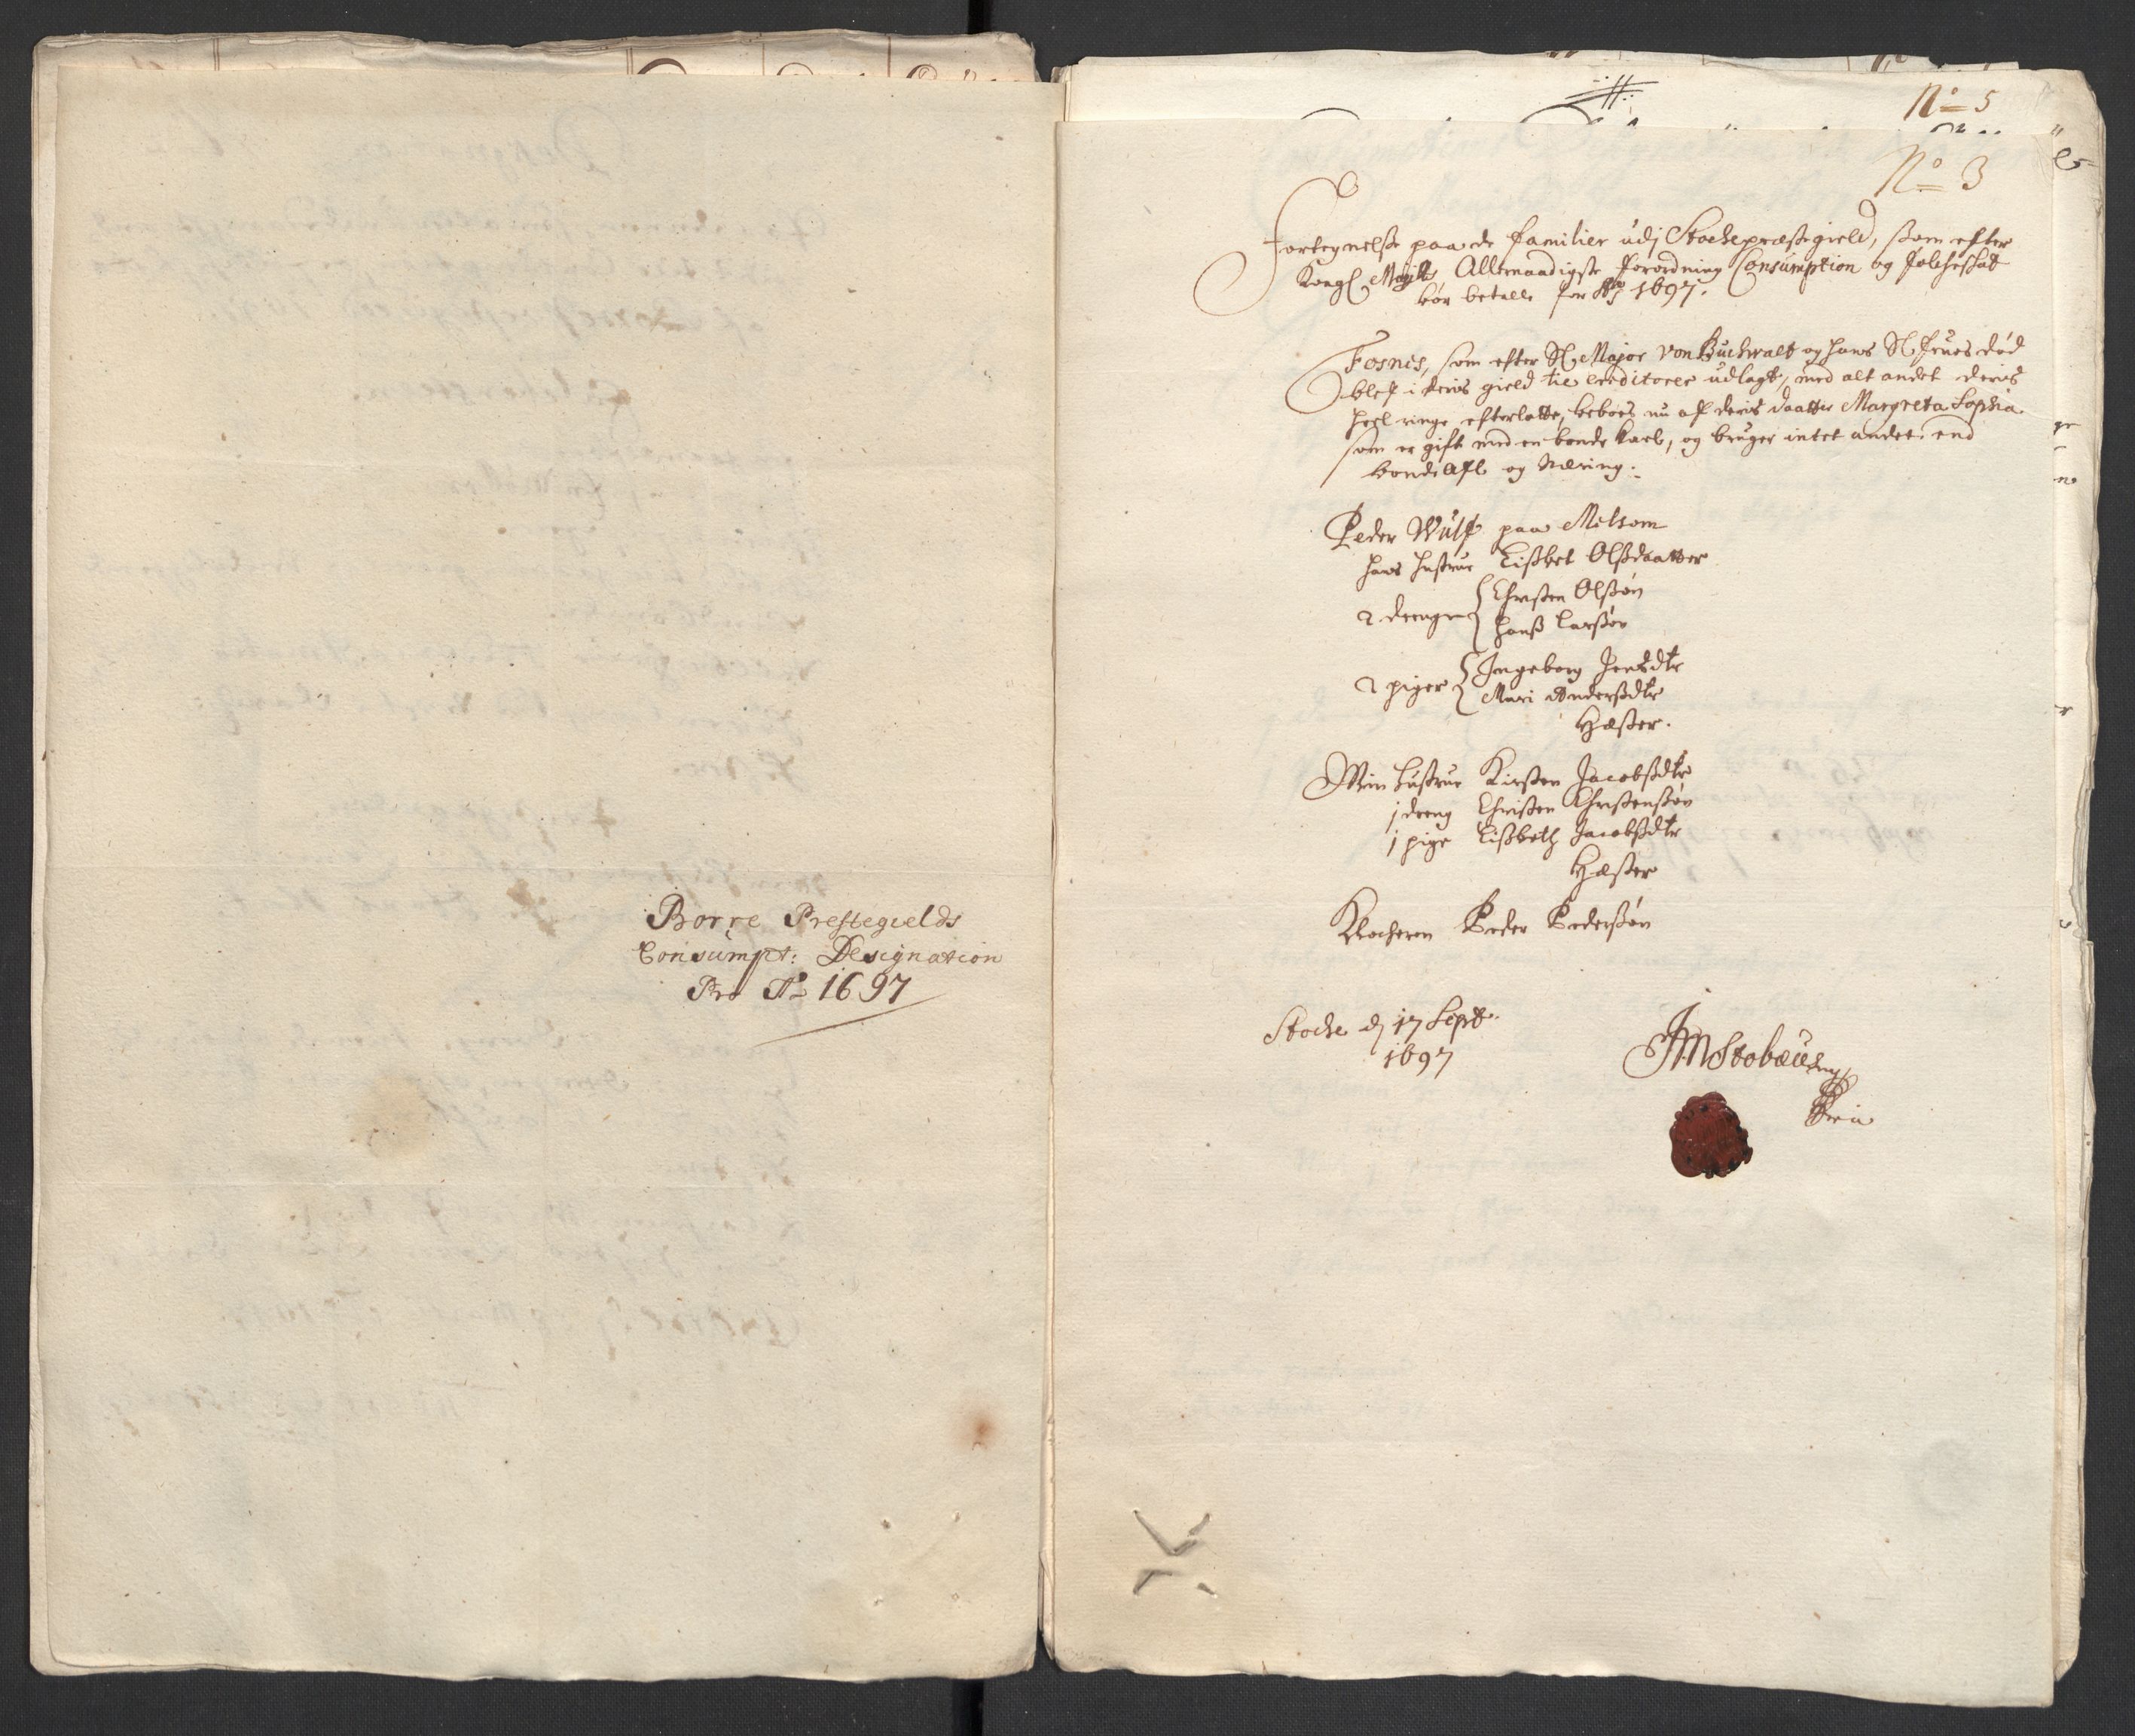 Borre Prestegields
Consumpt: Designation
Pro Ao 1697
No 5
No 3
Fortegnelse paa de familier udj Stockepræstegield, som efter
Kongl Maÿts Allernaadigste forordning Consumption og folcheskat
bør betalle for Ao 1697.
Fosnes, som efter Sl. Major von Buchwalt og hans Sl. frues død
blef i deris gield til creditorer udlagt, med alt andet deris
heel ringe efterlatte, beboes nu af deris daatter Margreta Sophia
som er gift med en bonde karl, og bruger intet andet end
bonde afl og Næring.
Peder Wulf paa Melsom
hans hustrue Lisbet Olsdaatter
2 drenge Christen Olssøn
Hans Larssøn
2 piger Ingeborg Jensdtr
Mari Andersdtr
Hæster.
Min hustrue Kirsten Jacobsdtr
1 dreng Christen Christenssøn
1 pige Lisbeth Jacobsdtr
Hæster
Klocheren Peder Pederssøn
Stocke d 17 Sept.
1697
JMStobæus